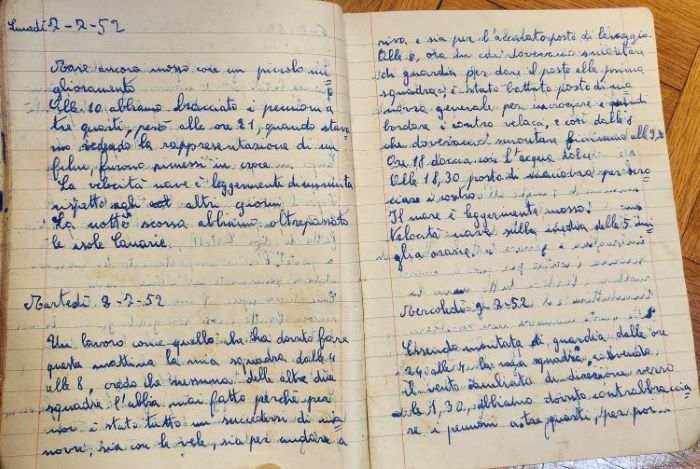 Lunedì 7-7-52
Mare ancora mosso con un piccolo mi=
glioramento
Alle 10 abbiamo bracciato i pennoni a
tre quarti, però alle ore 21, quando stava=
mo vedendo la rappresentazione di un
film, furono rimessi in croce.
La velocità nave è leggermente diminuita
rispetto agli altri giorni
La notte scorsa abbiamo oltrepassato
le isole Canarie.
Martedì 8-7-52
Un lavoro come quello che ha dovuto fare
questa mattina la mia squadra dalle 4
alle 8, credo che nessuna delle altre due
squadre l'abbia mai fatto perché per
noi è stato tutto un succedersi di ma=
novre, sia con le vele, sia per andare a
riva e sia per l'assestato posto di lavaggio.
Alle 8, ora in cui dovevamo smontare
di guardia per dare il posto alla prima
squadra, è stato battuto posto di ma=
novra generale per incrociare e quindi
bordare i contro velacci, e così dalle 8
che dovevamo smontare finimmo alle 9,30
Ore 18 doccia con l'acqua dolce
Alle 18,30 posto di manovra per brac=
ciare i contro
Il mare è leggermente mosso.
Velocità nave sulla media delle 5 mi=
glia orarie.
Mercoledì 9-7-52
Essendo montata di guardia dalle ore
24 alle 4 la mia squadra, e avendo
il vento cambiato di direzione verso
le 1,30, abbiamo dovuto controbraccia=
re i pennoni a tre quarti, per poi